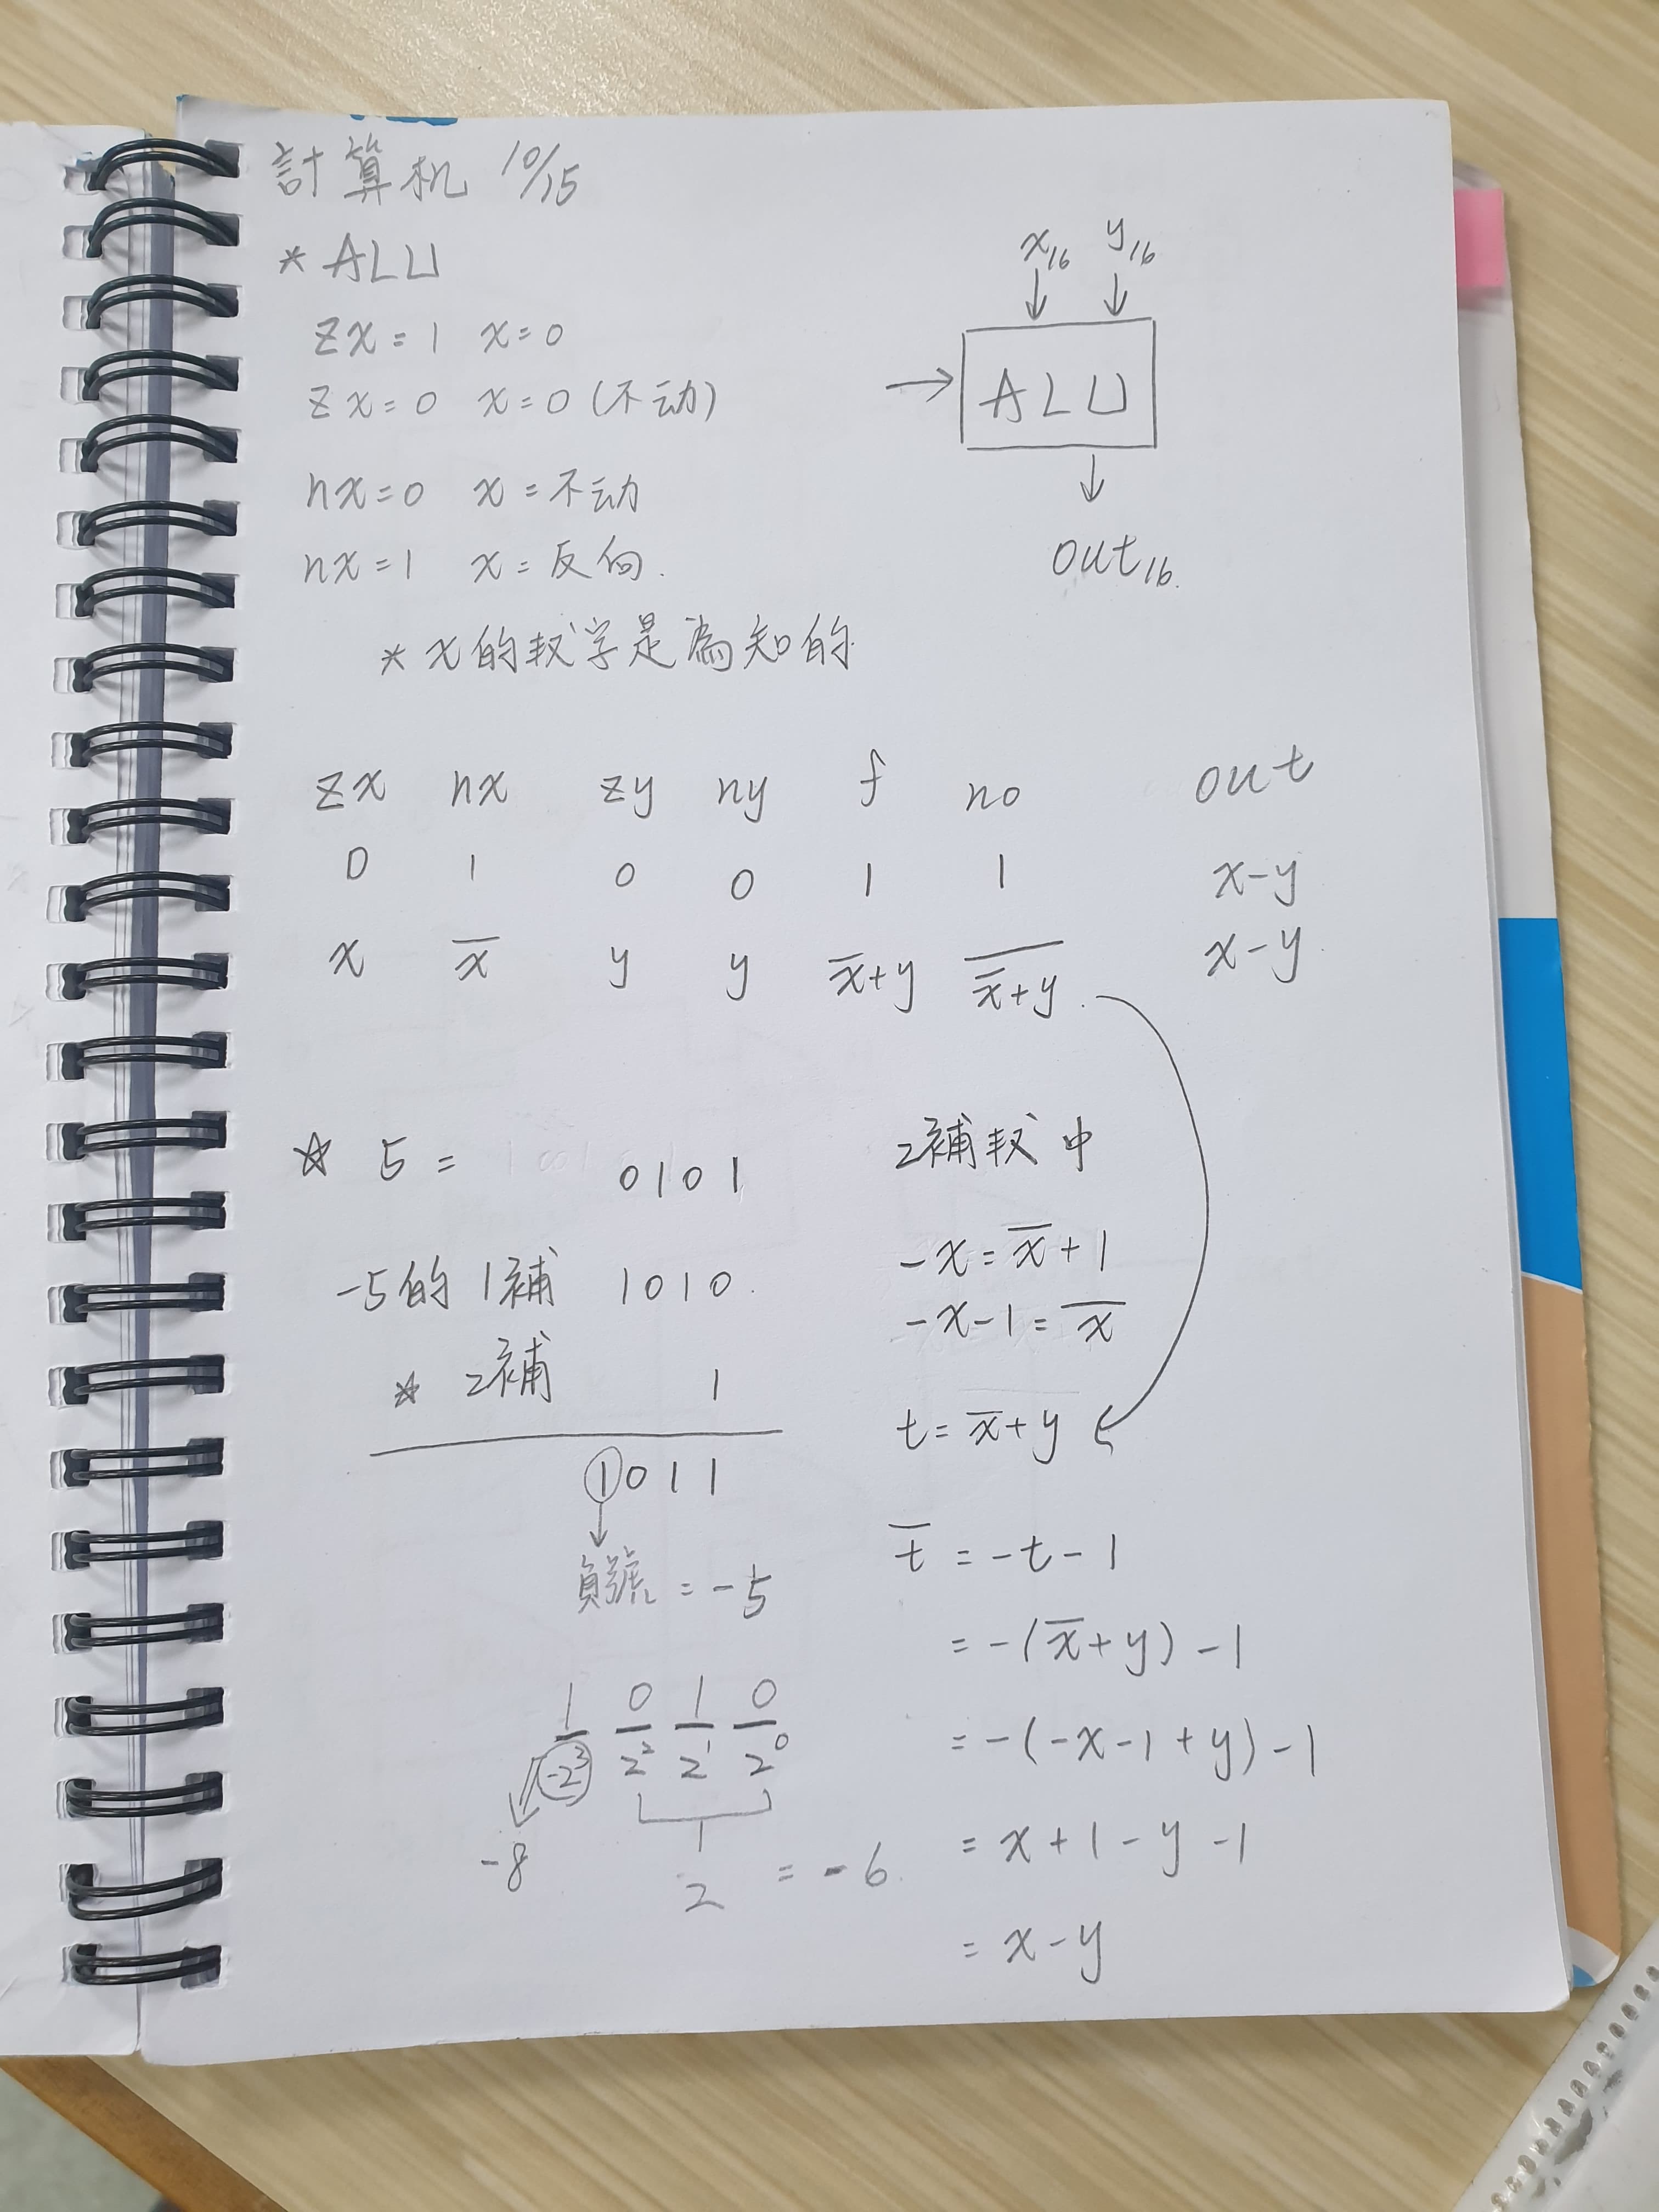 計算机 10/15
* ALU
zx=1 x=0
zx=0 x=0 (不动)
nx=0 x=不动
nx=1 x=反向.
* x的数字是為知的
x16 y16
ALU
out16.
zx nx zy ny f no out
0 1 0 0 1 1 x-y
x x̅ y y x̅+y \overline{x̅+y}. x-y.
☆ 5 = 0101
-5的1補 1010.
☆ 2補 1
1011
負號 = -5
1 0 1 0
-2³ 2² 2¹ 2⁰
-8 2 = -6.
2補数中
-x = x̅+1
-x-1 = x̅
t = x̅+y
t̅ = -t-1
= -(x̅+y)-1
= -(-x-1+y)-1
= x+1-y-1
= x-y